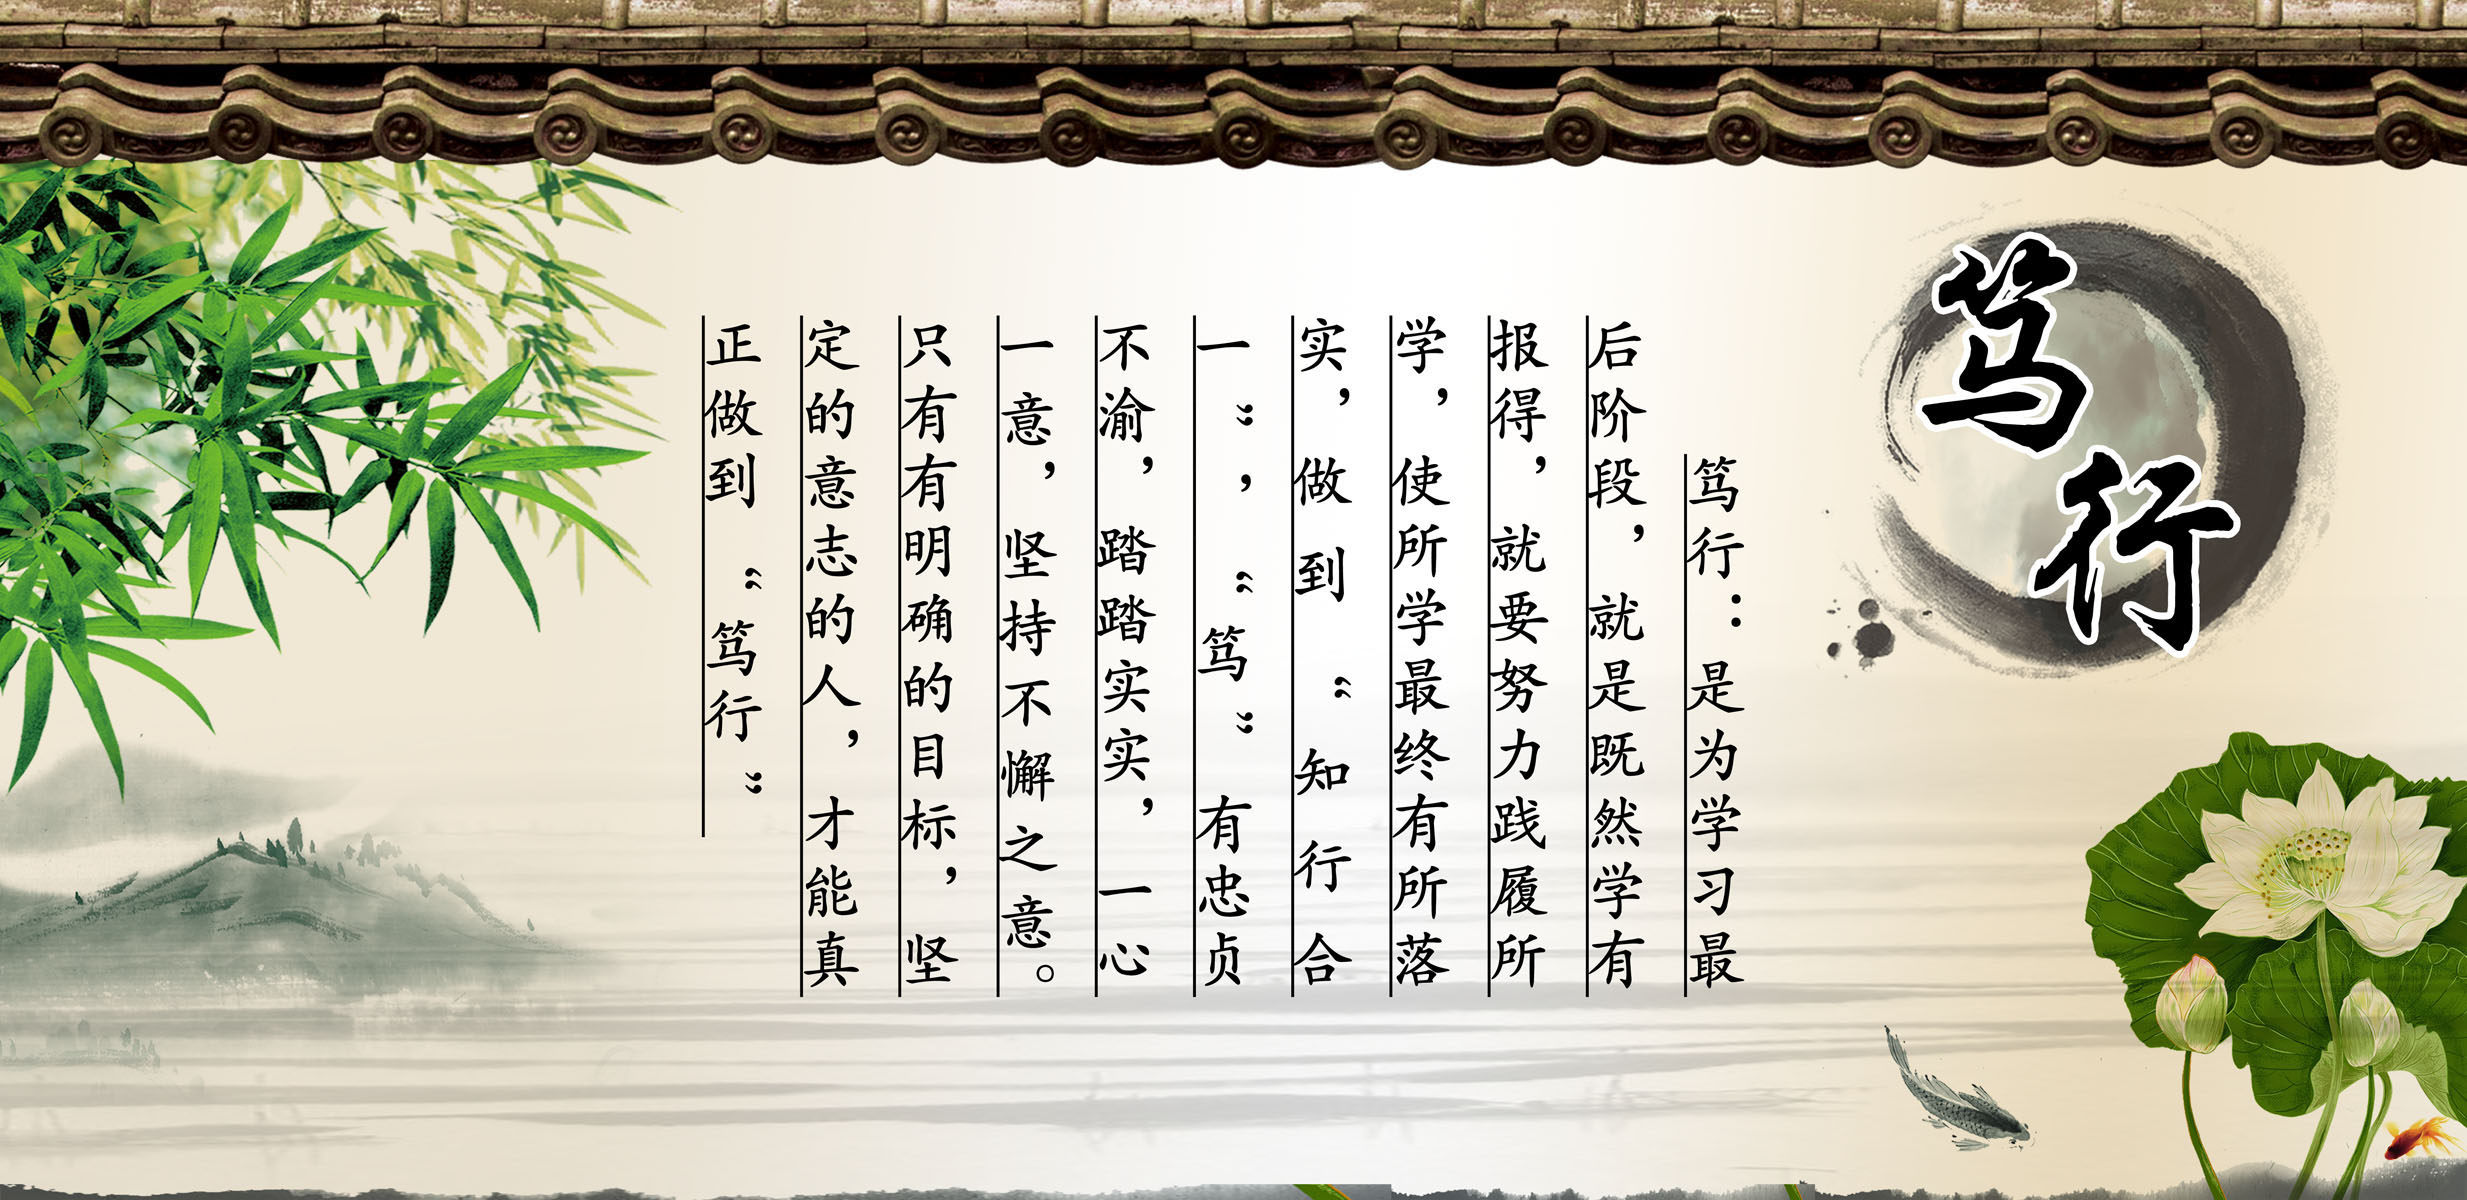 笃行
笃行：是为学习最
后阶段，就是既然学有
报得，就要努力践履所
学，使所学最终有所落
实，做到“知行合
一”，“笃”有忠贞
不渝，踏踏实实，一心
一意，坚持不懈之意。
只有有明确的目标，坚
定的意志的人，才能真
正做到“笃行”